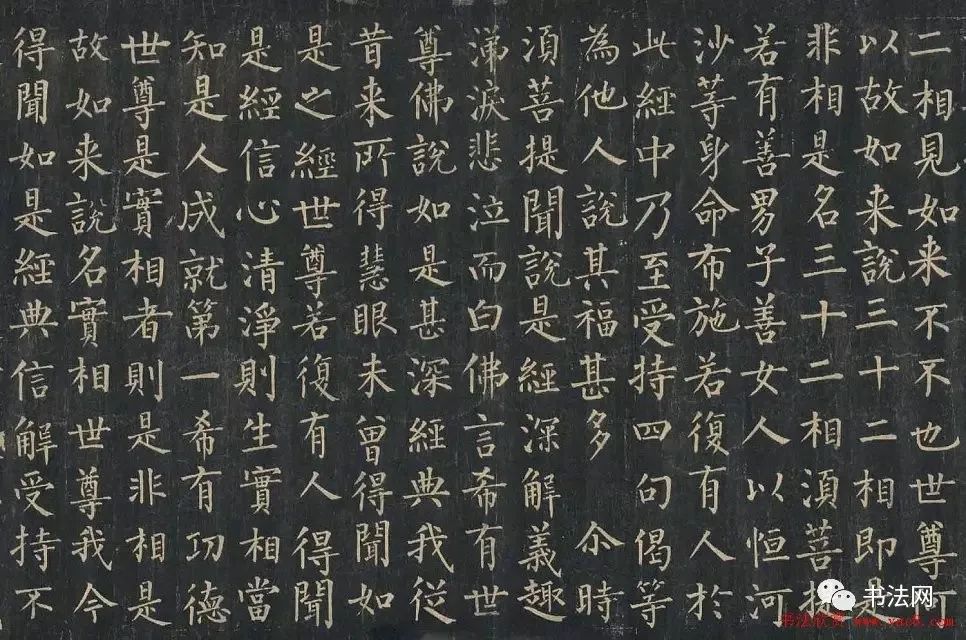 二相見如来不不也世尊何
以故如来說三十二相即是
非相是名三十二相湏菩提
若有善男子善女人以恒河
沙等身命布施若復有人於
此經中乃至受持四句偈等
為他人說其福甚多 尒時
湏菩提聞說是經深解義趣
涕淚悲泣而白佛言希有世
尊佛說如是甚深經典我從
昔来所得慧眼未曾得聞如
是之經世尊若復有人得聞
是經信心清淨則生實相當
知是人成就第一希有功德
世尊是實相者則是非相是
故如来說名實相世尊我今
得聞如是經典信解受持不
书法网